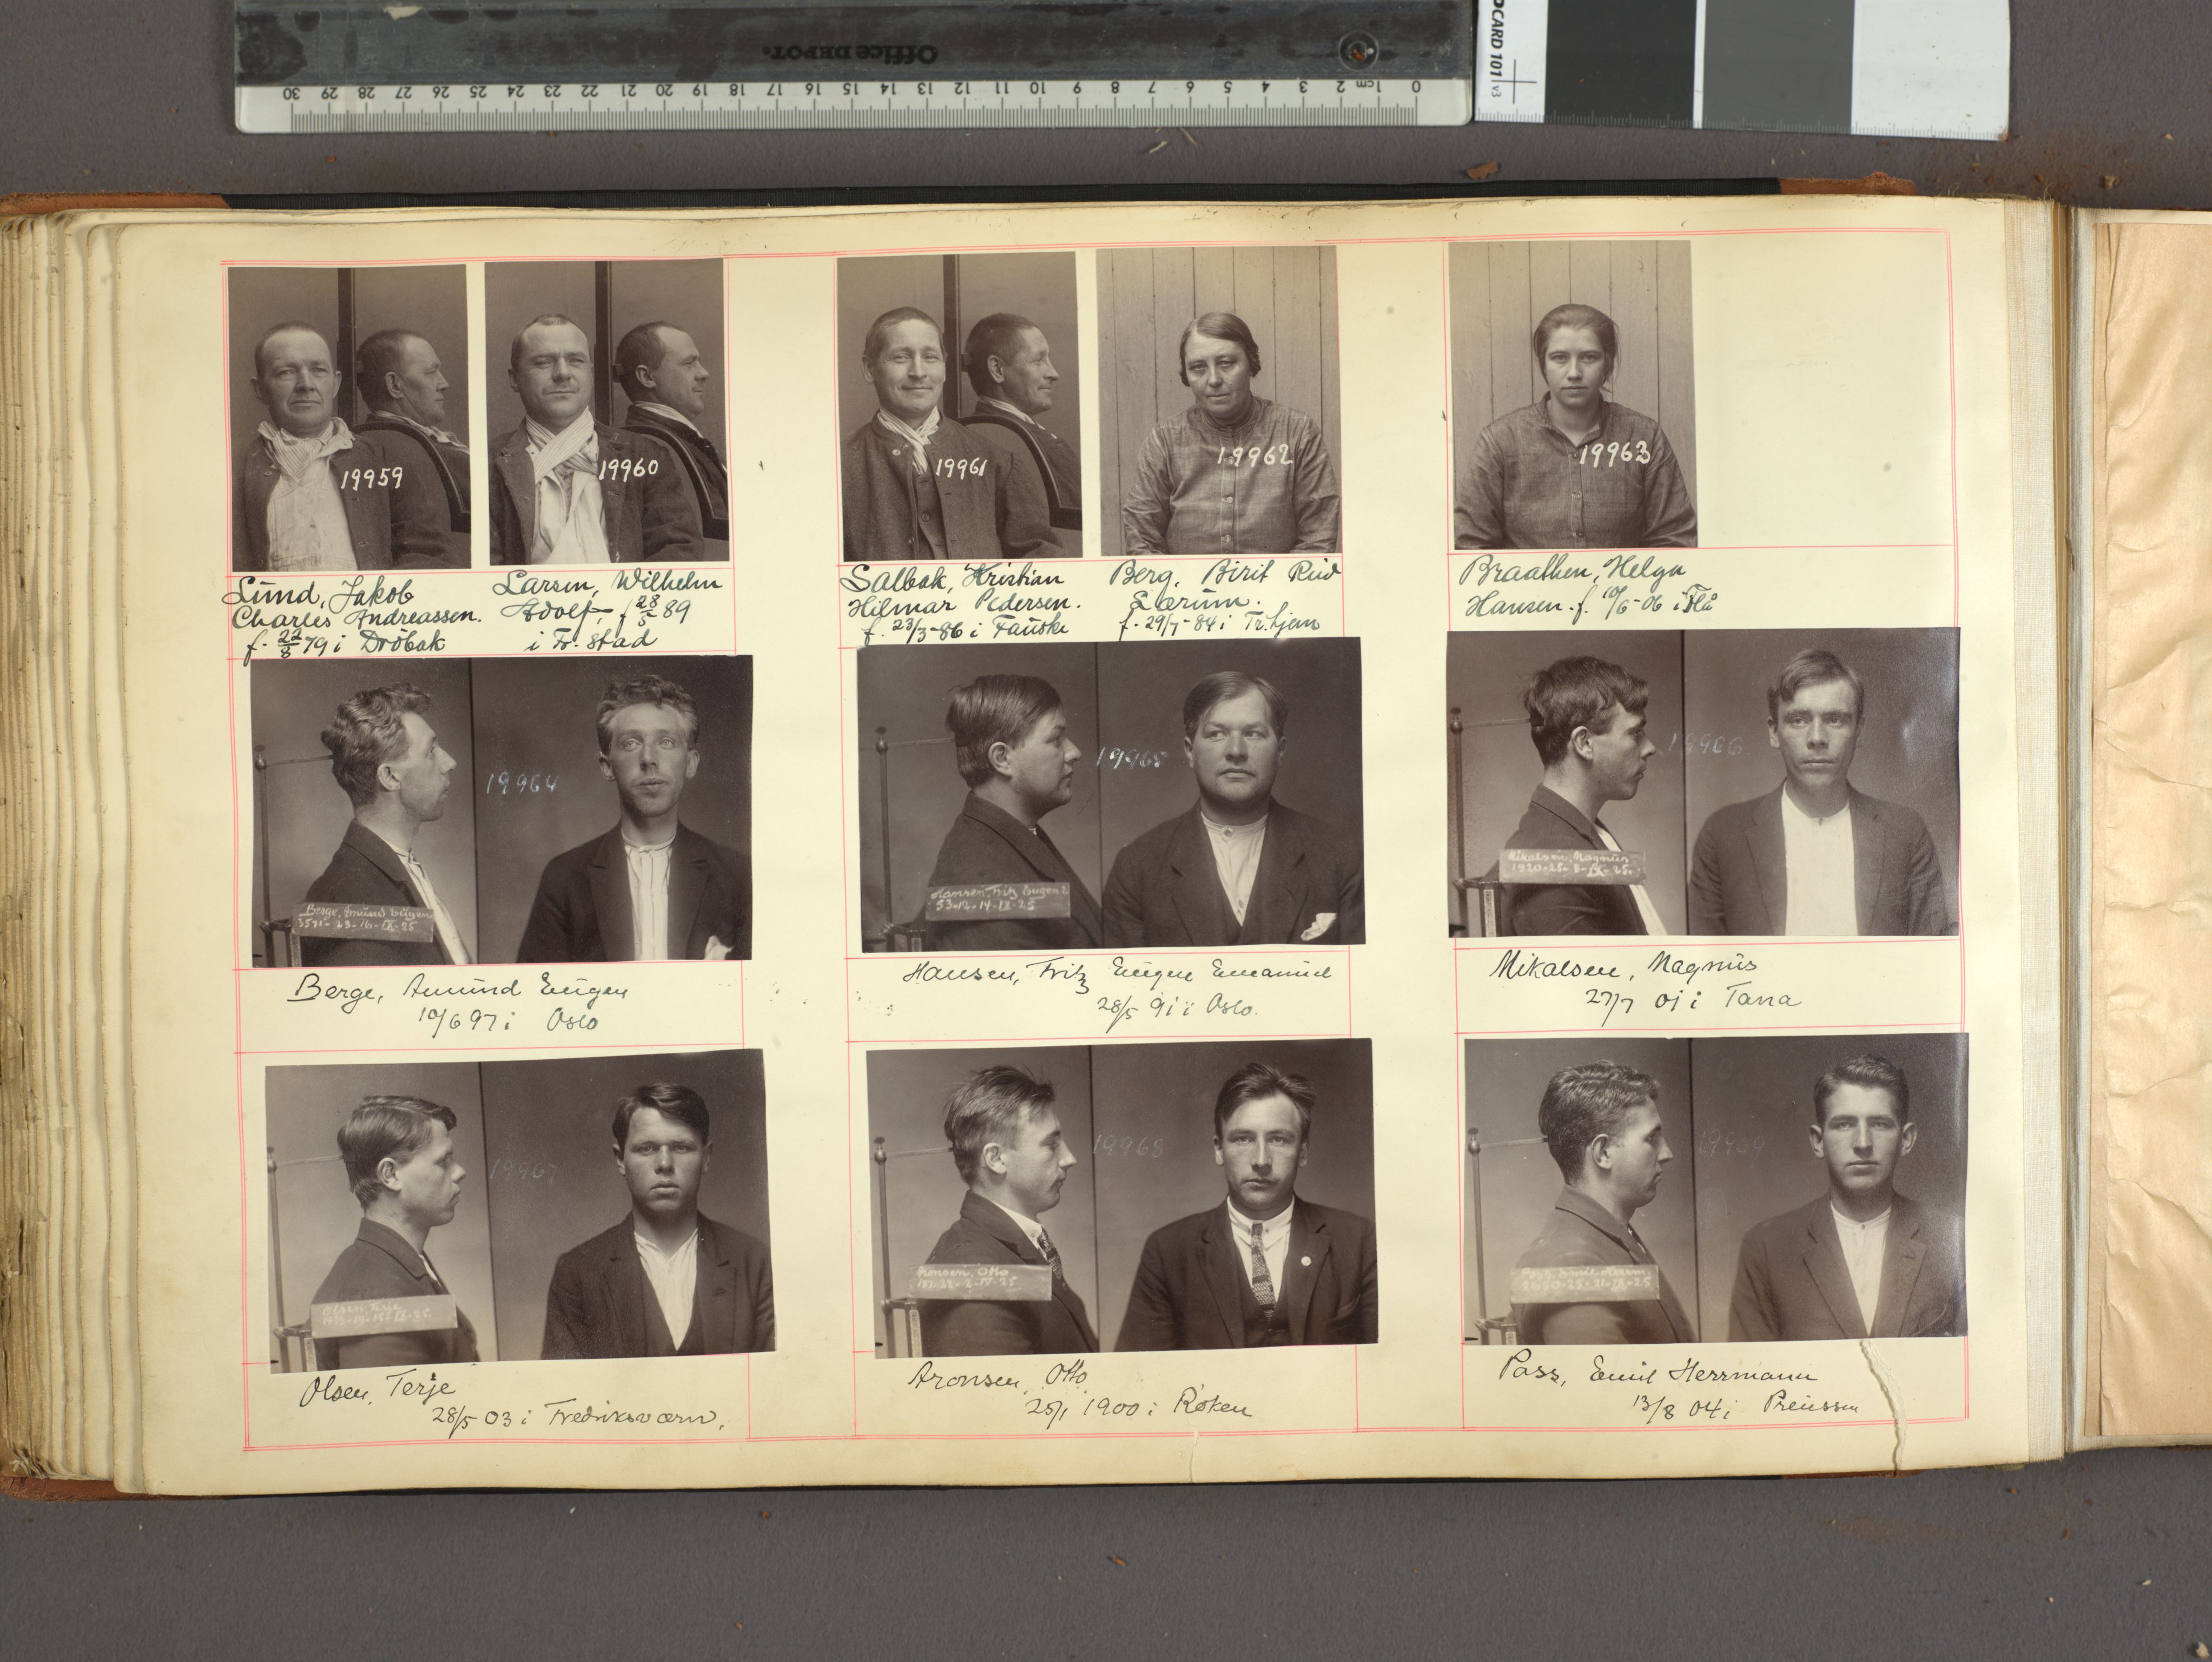 Office DEPOT.
30 29 28 27 26 25 24 23 22 21 20 19 18 17 16 15 14 13 12 11 10 9 8 7 6 5 4 3 2 1cm 0
CARD 101 v3
19959
19960
19961
19962
19963
Lund, Jakob
Charles Andreassen.
f. 22/8 79 i Dröbak
Larsen, Wilhelm
Adolf, f 28/5 89
i Fr. stad
Salbak, Kristian
Hilmar Pedersen.
f. 23/3-86 i Fauske
Berg, Birit Rud
Lærum.
f. 29/7-84 i Tr.hjem
Braathen, Helga
Hansen. f. 10/6-06 i Flå
19964
Berge, Amund Eugen
3571-23-16-IX-25
19965
Hansen, Fritz Eugen E
53-12-14-IX-25
19966
Mikalsen, Magnus
1920-25-8-IX-25.
Berge, Amund Eugen
10/6 97 i Oslo
Hansen, Fritz Eugen Emanuel
28/5 91 i Oslo.
Mikalsen, Magnus
27/7 01 i Tana
19967
Olsen, Terje
19968
Aronsen, Otto
19969
Pass, Emil Herrm
2650-25-21-IX-25
Olsen, Terje
28/5 03 i Fredriksværn,
Aronsen, Otto
25/1 1900 i Röken
Pass, Emil Herrmann
13/8 04 i Preussen